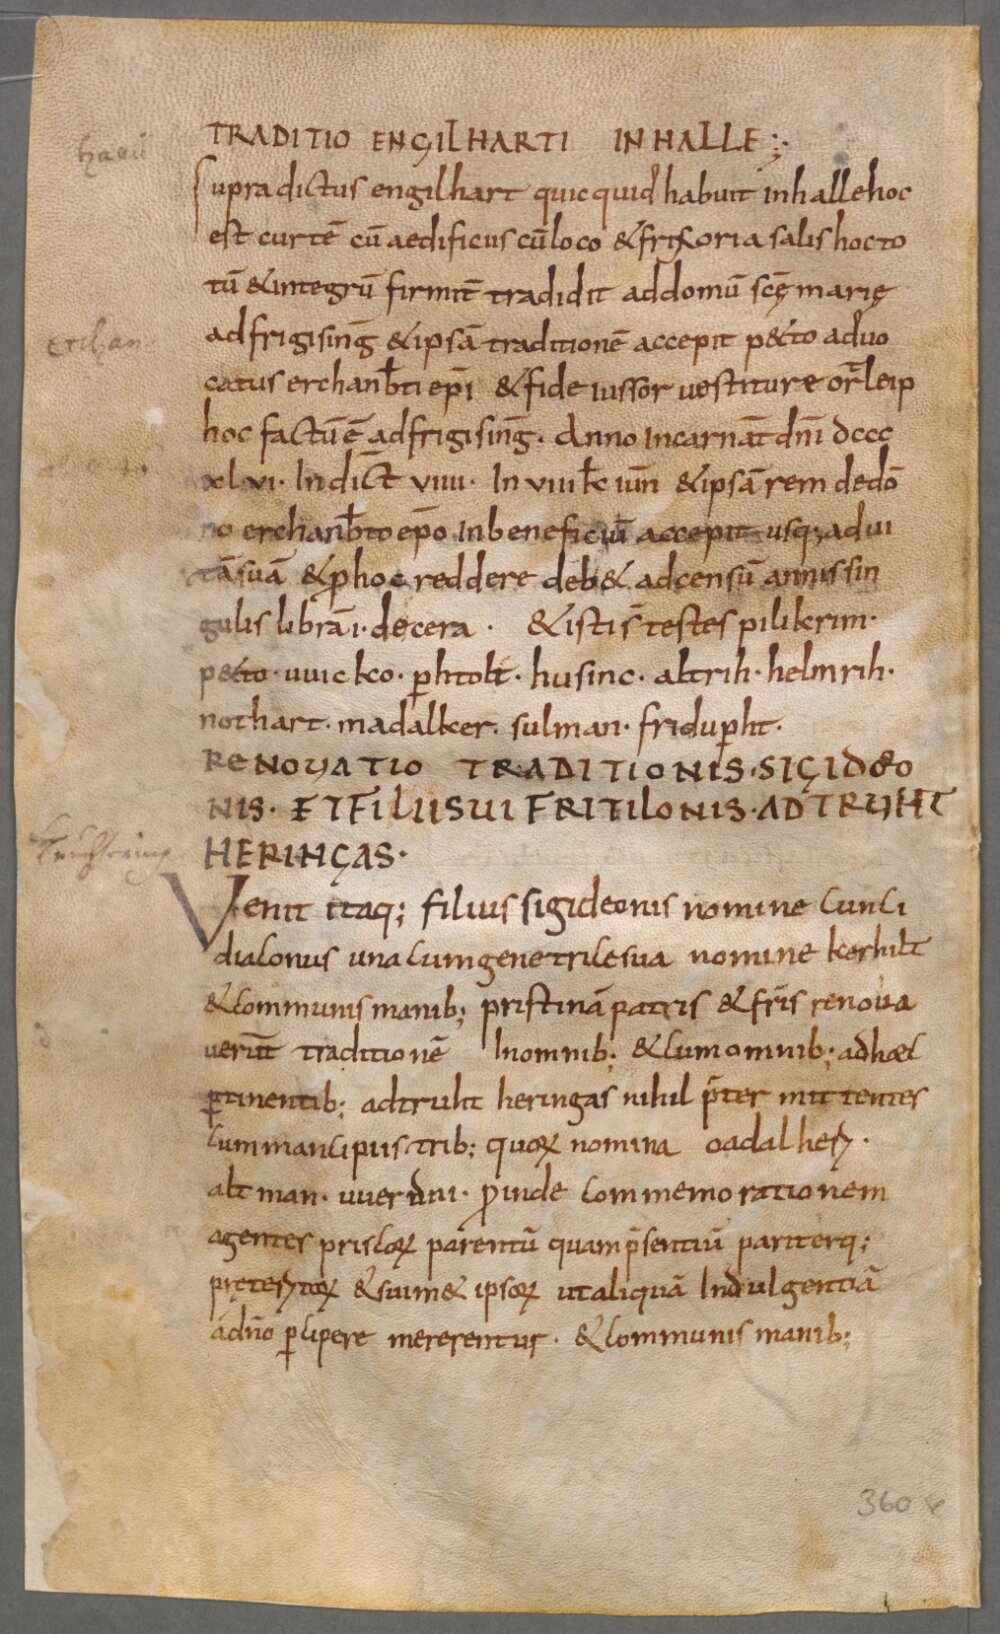 TRADITIO ENGILHARTI IN HALLE;
Supra dictus engilhart quicquid habuit in halle hoc
est curtē cū aedificiis cū loco & frixoria salis hoc to
tū & integrū firmit̄ tradidit ad domū scę̄ marię
ad frigising̅ & ipsā traditionē accepit p&to aduo
catus erchanb̅ti ep̄i & fide iussor uestiture or̄leip
hoc factū ē ad frigising̅. Anno Incarnat̄ dn̄i dccc
xlvi. Indict̄ viiii. In viii kl̄ iun̄ & ipsā rem de do
no erchanb̅to ep̄o In beneficiū accepit usq; ad ui
tā suā & p̱ hoc reddere deb& ad censū annis sin
gulis librā i. de cera. & isti s̄ testes pilikrim.
p&to. uuicko. p̱htolt. husinc. altrih. helmrih.
nothart. madalker. sulman. fridup̱ht.
RENOUATIO TRADITIONIS. SIGIDEO
NIS. ET FILII SUI FRITILONIS. AD TRUHT
HERINGAS.
Venit itaq; filius sigideonis nomine cunci
diaconus una cum genetrice sua nomine kerhilt
& communis manib; pristinā patris & fr̄is renoua
uerūt traditionē In omnib; & cum omnib; ad haec
p̱tinentib; ad truht heringas nihil p̄ter mittentes
cum mancipiis trib; quoꝝ nomina oadalheř.
alt man. uuerdni. ꝓinde commemorationem
agentes priscoꝝ parentū quam p̄sentiū pariterq;
pręteritoꝝ & suim& ipsoꝝ ut aliquā Indulgentiā
a dn̄o p̱cipere mererentur. & communis manib;
360 v